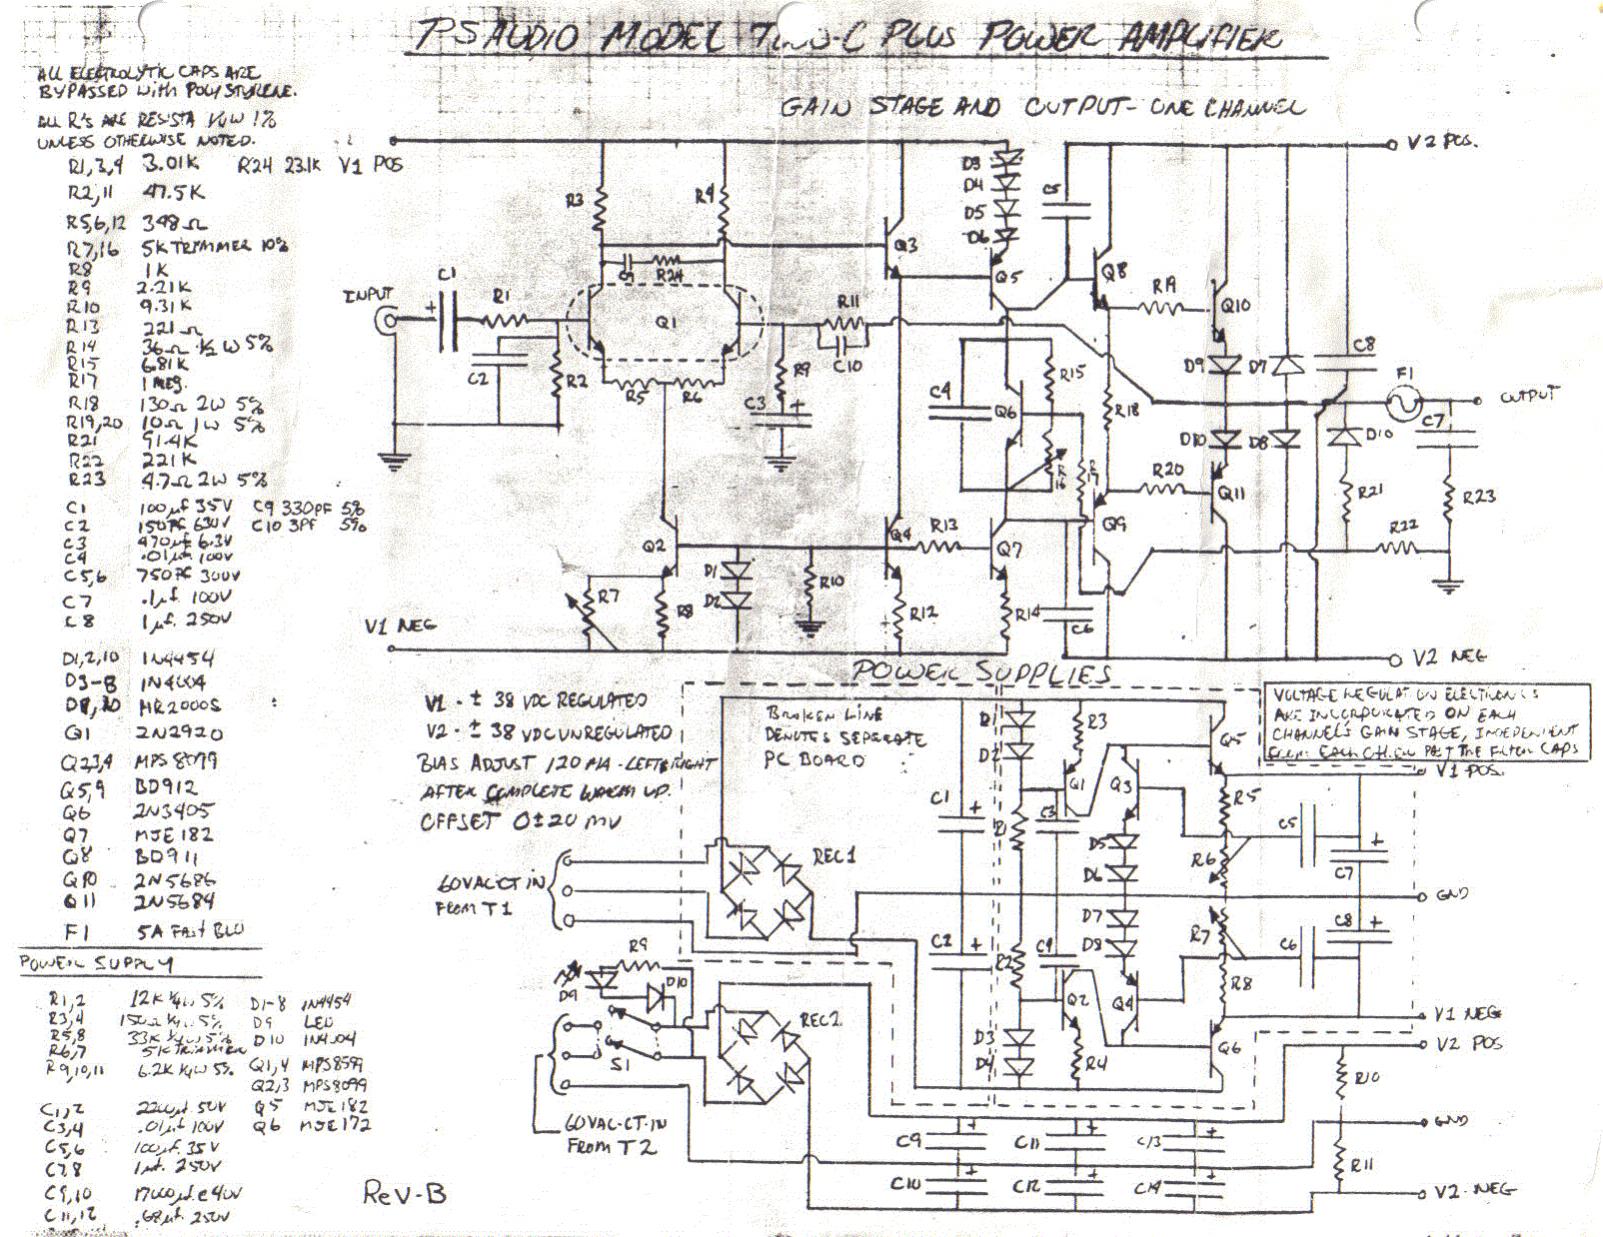 PS AUDIO MODEL TWO-C PLUS POWER AMPLIFIER
ALL ELECTROLYTIC CAPS ARE
BYPASSED with POLYSTYRENE.
ALL R's ARE RESISTA 1/4W 1%
UNLESS OTHERWISE NOTED.
GAIN STAGE AND OUTPUT - ONE CHANNEL
R1,3,4 3.01K R24 23.1K
R2,11 47.5K
R5,6,12 348Ω
R7,16 5K TRIMMER 10%
R8 1K
R9 2.21K
R10 9.31K
R13 221Ω
R14 36Ω 1/2 W 5%
R15 6.81K
R17 1 MEG.
R18 130Ω 2W 5%
R19,20 10Ω 1W 5%
R21 91.4K
R22 221K
R23 4.7Ω 2W 5%
C1 100µf 35V C9 330PF 5%
C2 150PF 630V C10 3PF 5%
C3 470µf 6.3V
C4 .01µf 100V
C5,6 750PF 300V
C7 .1µf. 100V
C8 1µf. 250V
D1,2,10 1N4454
D3-8 1N4004
MR2000S
Q1 2N2920
Q2,3,4 MPS 8099
Q5,9 BD912
Q6 2N3405
Q7 MJE182
Q8 BD911
Q10 2N5686
Q11 2N5684
F1 5A Fast BLO
POWER SUPPLY
R1,2 12K 1/4W 5% D1-8 1N4454
R3,4 150Ω 1/4W 5% D9 LED
R5,8 33K 1/4W 5% D10 1N4004
R6,7 5K TRIMMER
R9,10,11 6.2K 1/4W 5% Q1,4 MPS8599
Q2,3 MPS8099
C1,2 2200µf 50V Q5 MJE182
C3,4 .01µf 100V Q6 MJE172
C5,6 100µf 35V
C7,8 1µf. 250V
C9,10 40V
C11,12 .68µf. 250V
V1 POS
V2 POS.
R3
R4
D3
D4
D5
D6
C5
Q3
Q5
Q8
C9
R24
INPUT
C1
R1
Q1
R11
R19
Q10
C2
R2
R5
R6
C10
R9
C3
C4
R15
Q6
R18
D9
D7
C8
F1
OUTPUT
C7
D10
D8
D10
R16
R17
R20
Q11
R21
R23
Q2
D1
D2
R10
Q4
R13
Q7
Q9
R22
R7
R8
R12
R14
C6
V1 NEG
V2 NEG
POWER SUPPLIES
V1 - ± 38 VDC REGULATED
V2 - ± 38 VDC UNREGULATED
BIAS ADJUST 120 MA - LEFT & RIGHT
AFTER COMPLETE WARM UP.
OFFSET 0±20 MV
BROKEN LINE
DENOTES SEPERATE
PC BOARD
VOLTAGE REGULATION ELECTRONICS
ARE INCORPORATED ON EACH
CHANNEL'S GAIN STAGE, INDEPENDENT
FROM EACH OTHER PAST THE FILTER CAPS
V1 POS.
D1
D2
R3
Q1
Q3
Q5
R5
C1
R1
C3
D5
D6
R6
C5
C7
60VAC-CT IN
FROM T1
REC1
GND
C2
R2
C4
D7
D8
R7
C6
C8
R9
D9
D10
S1
REC2
Q2
Q4
R8
D3
D4
R4
Q6
V1 NEG
V2 POS
60VAC-CT-IN
FROM T2
R10
GND
C9
C11
C13
C10
C12
C14
R11
V2-NEG
REV-B